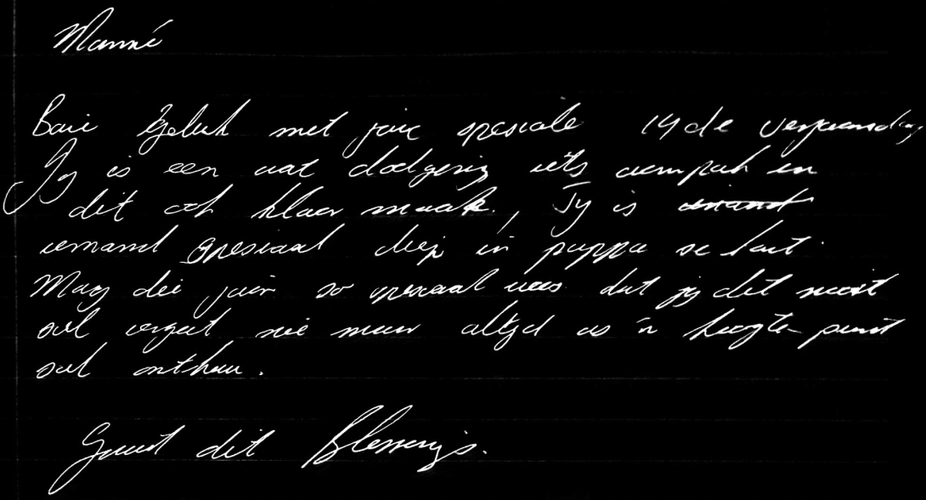 Manné
Baie geluk met jou spesiale 14de verjaarsdag,
Jy is een wat doelgerig iets aanpak en
dit ook klaar maak, Jy is
iemand spesiaal diep in pappa se hart.
Mag dei jaar so spesiaal wees dat jy dit nooit
sal vergeet nie maar altyd as 'n hoogte-punt
sal onthou.
Groot dit Blessings.